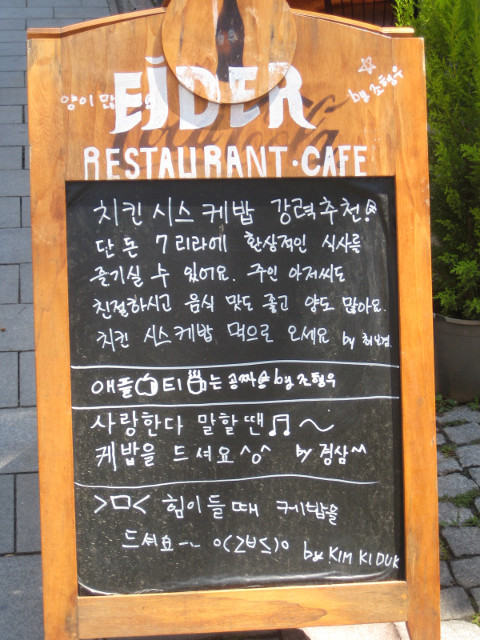 양이 많
EJDER
by 조형우
RESTAURANT·CAFE
치킨 시스 케밥 강력추천!
단 돈 7리라에 환상적인 식사를
즐기실 수 있어요. 주인 아저씨도
친절하시고 음식 맛도 좋고 양도 많아요.
치킨 시스케밥 먹으로 오세요 by
애플 티 는 공짜 by 조형우
사랑한다 말할땐 ♬ ~
케밥을 드셔요 ^o^ by 경삼 ^^
>ㅁ< 힘이들때 케밥을
드셔요 ~~ o(ㄹㅂㅅ)o
by KIM KI DUK